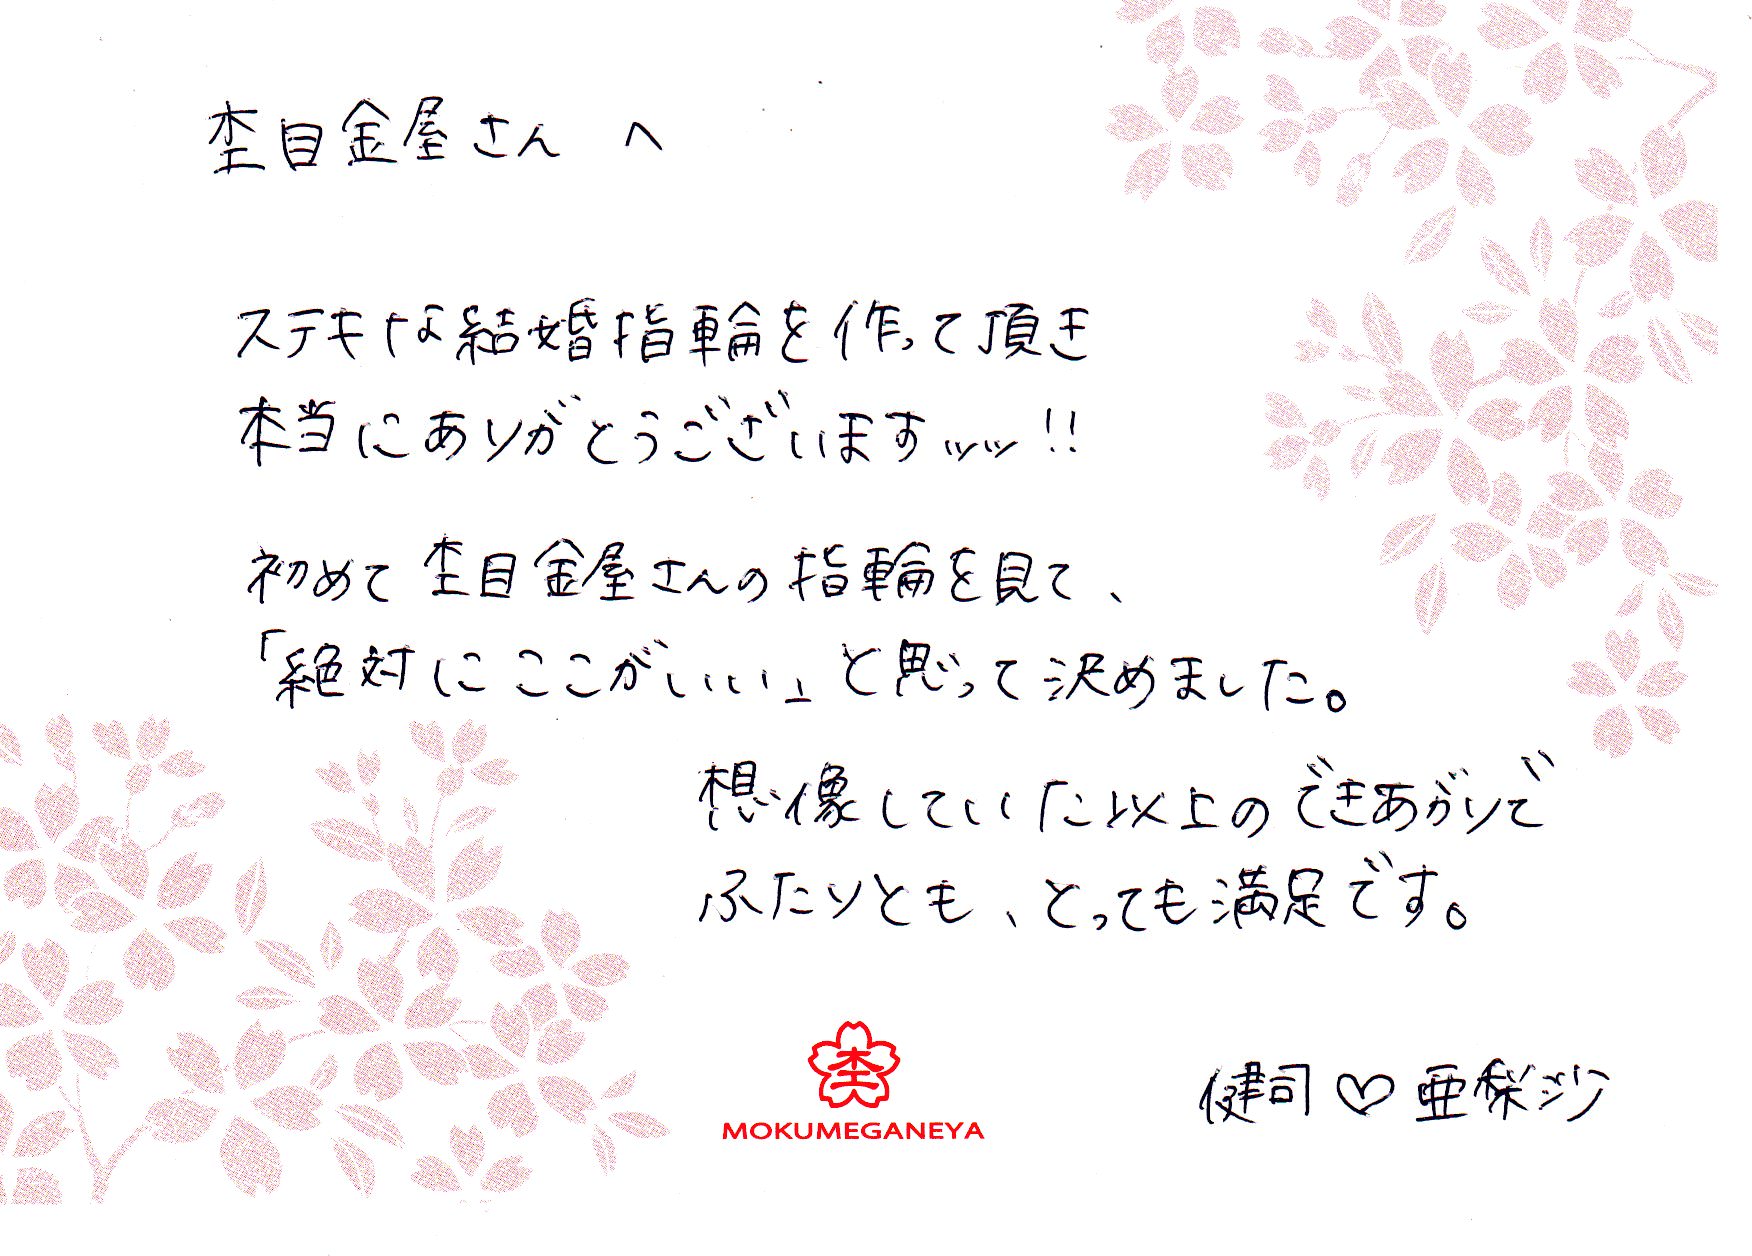 杢目金屋さん へ
ステキな結婚指輪を作って頂き
本当にありがとうございますッッ!!
初めて杢目金屋さんの指輪を見て、
「絶対にここがいい」と思って決めました。
想像していた以上のできあがりで
ふたりとも、とっても満足です。
杢
MOKUMEGANEYA
健司♡亜梨沙